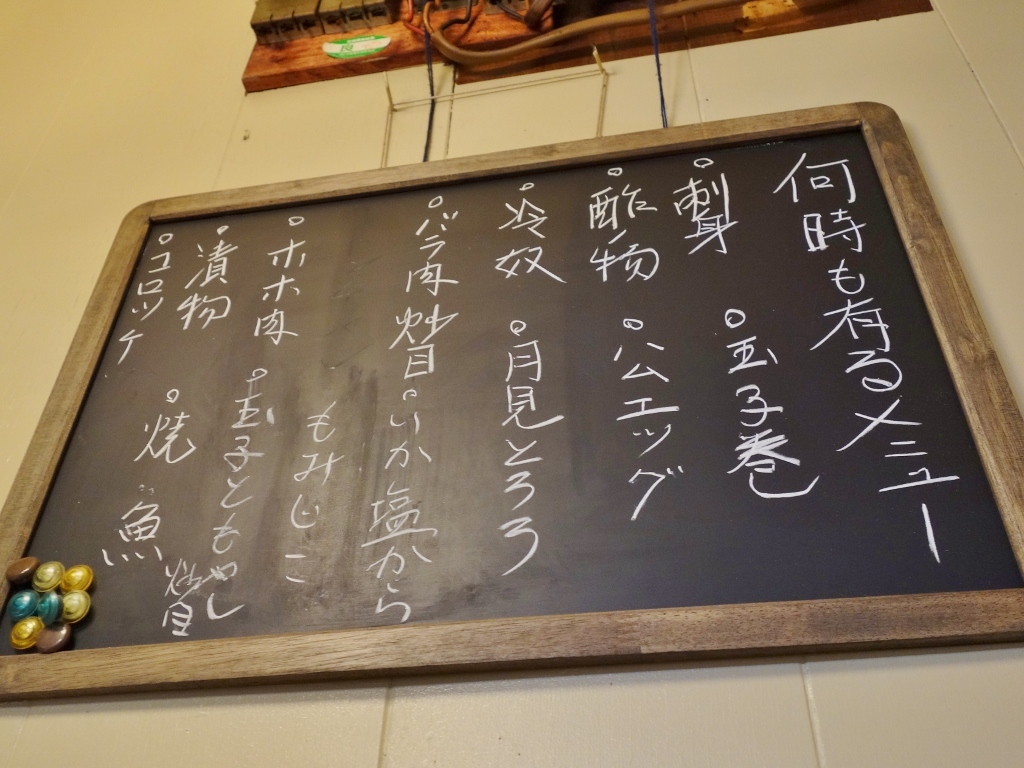 何時も有るメニュー
○刺身
○玉子巻
○酢物
○ハムエッグ
○冷奴
○月見とろろ
○バラ肉炒目
○いか塩から
もみじこ
○ホホ肉
○玉子ともやし炒目
○漬物
○焼魚
○コロッケ